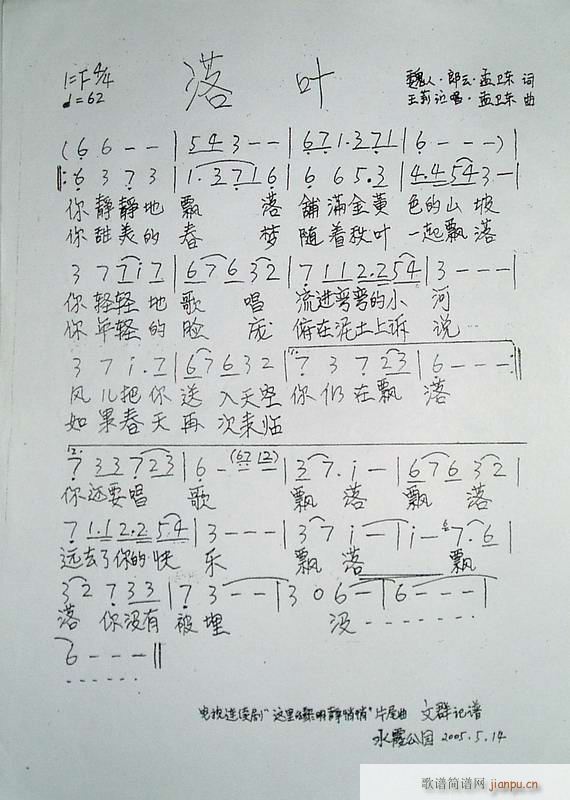 落叶
1=F 4/4
♩=62
魏人·郎云·孟卫东 词
王莉 演唱·孟卫东 曲
(6 6 - - | 5 4 3 - - | 6 7 1·3 7 1 | 6 - - -)|
‖: 6 3 7 3 | 1·3 7 1 6 | 6 6 5·3 | 4·4 5 4 3 - |
你静静地 飘 落 铺满金黄 色的山坡
你甜美的 春 梦 随着秋叶 一起飘落
3 7 7 i 7 | 6 7 6 3 2 | 7 1 1 2·2 5 4 | 3 - - - |
你轻轻地 歌 唱 流进弯弯的小 河
你年轻的 脸 庞 俯在泥土上诉 说
3 7 i·7 | 6 7 6 3 2 | 1. 7 3 7 2 3 | 6 - - - :‖
风儿把你 送 入天空 你们在飘 落
如果春天 再 次来临
2. 7 3 3 7 2 3 | 6 - (6 7 1 2) | 3 7·i - | 6 7 6 3 2 |
你还要唱 歌 飘 落 飘 落
7 1·1 2·2 5 4 | 3 - - - | 3 7 i - | i - 7·6 |
远去了你的快 乐 飘 落 飘
3 2 7 3 3 | 7 3 - - | 3 0 6 - | 6 - - - |
落 你没有 被埋 没 - - - - - - -
6 - - - ‖
- - - - - -
电视连续剧"这里的黎明静悄悄"片尾曲 文群记谱
水霞公园 2005.5.14
歌谱简谱网
jianpu.cn